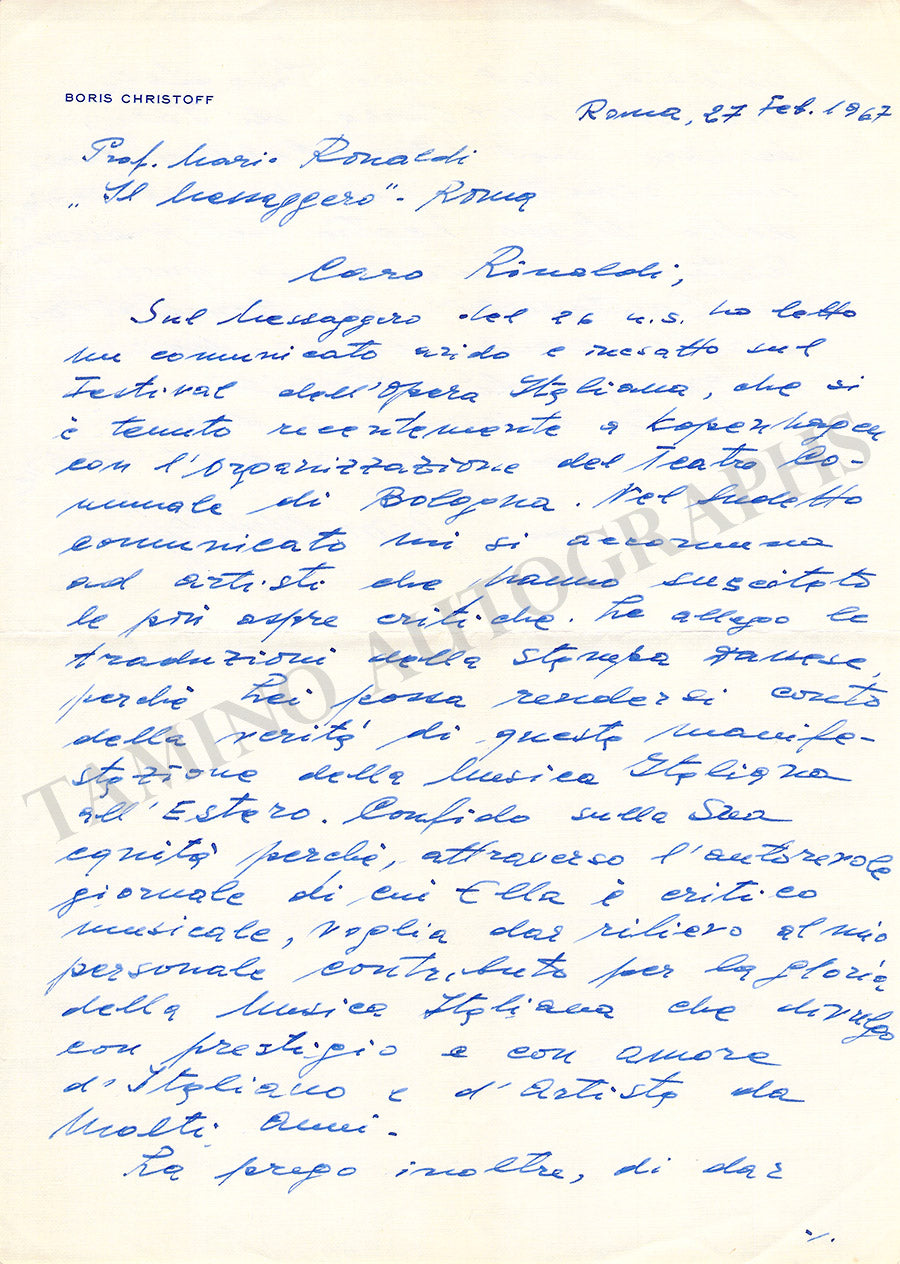 BORIS CHRISTOFF
Roma, 27 Feb. 1967
Prof. Mario Ronaldi
„Il Messaggero" - Roma
Caro Rinaldi,
Sul Messaggero del 26 u.s. ho letto
un comunicato arido e inesatto sul
Festival dell'Opera Italiana, che si
è tenuto recentemente a Kopenhagen
con l'Organizzazione del Teatro Co-
munale di Bologna. Nel Sudetto
comunicato mi si accomuna
ad artisti che hanno suscitato
le più aspre critiche. Le allego le
traduzioni della Stampa danese,
perché Lei possa rendersi conto
della verità di questa manife-
stazione della Musica Italiana
all'Estero. Confido sulla Sua
equità perché, attraverso l'autorevole
giornale di cui Ella è critico
musicale, voglia dar rilievo al mio
personale contributo per la gloria
della Musica Italiana che divulgo
con prestigio e con amore
d'Italiano e d'Artista da
Molti Anni.
La prego inoltre, di dar
./.
TAMINO AUTOGRAPHS